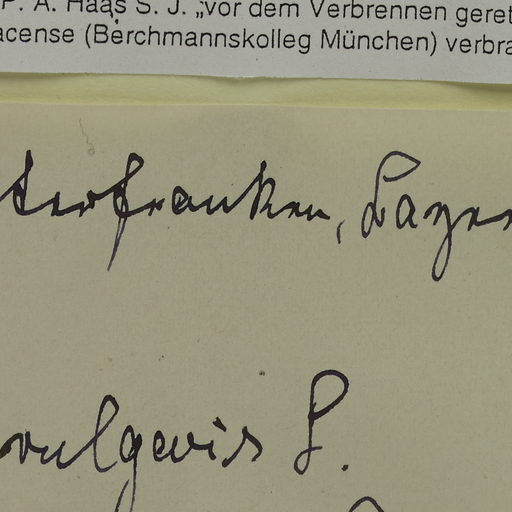 P. A. Haas S. J. „vor dem Verbrennen geret
acense (Berchmannskolleg München) verbra
terfranken, Bayer
vulgaris L.